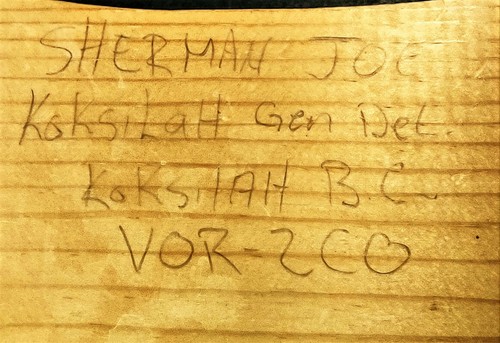 SHERMAN JOE
KoKsiLaH Gen Det.
KoKsilAH B.C.
VOR-2CO